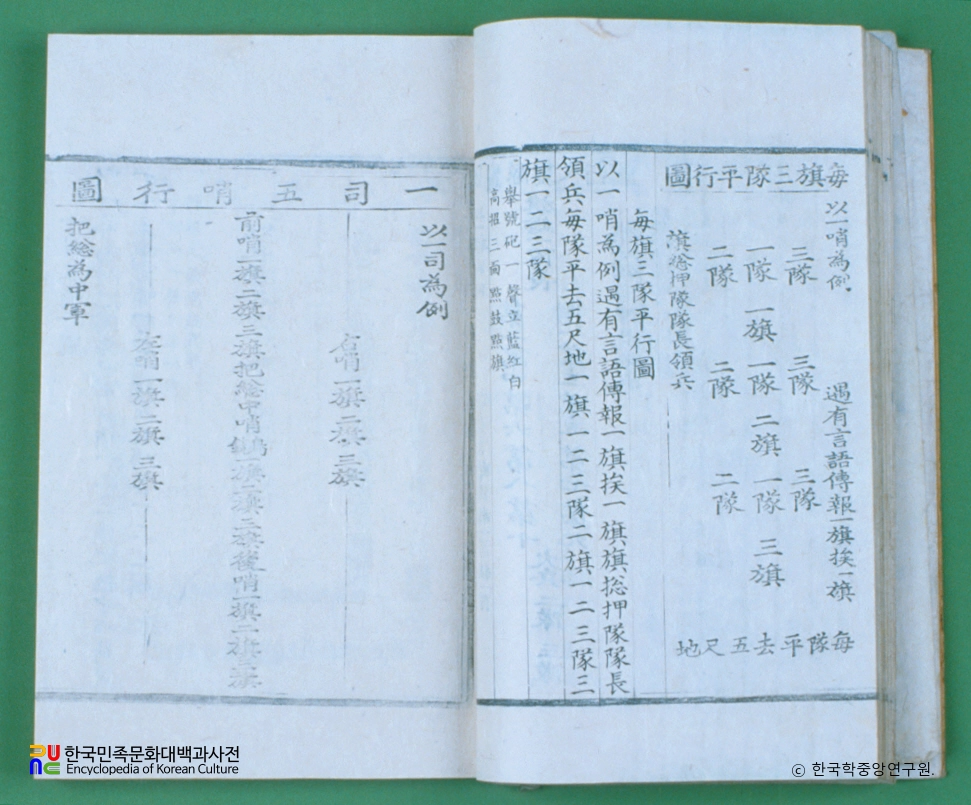 每旗三隊平行圖
以一哨為例
遇有言語傳報一旗挨一旗
三隊 三隊 三隊
一隊 一旗 一隊 二旗 一隊 三旗
二隊 二隊 二隊
每隊平去五尺地
旗總押隊隊長領兵
每旗三隊平行圖
以一哨為例遇有言語傳報一旗挨一旗旗総押隊隊長
領兵每隊平去五尺地一旗一二三隊二旗一二三隊三
旗一二三隊
舉號砲一聲立藍紅白
高招三面點鼓點旗
一司五哨行圖
以一司為例
右哨一旗二旗三旗
前哨一旗二旗三旗把総中哨一旗二旗三旗後哨一旗二旗三旗
左哨一旗二旗三旗
把総為中軍
한국민족문화대백과사전
Encyclopedia of Korean Culture
© 한국학중앙연구원.